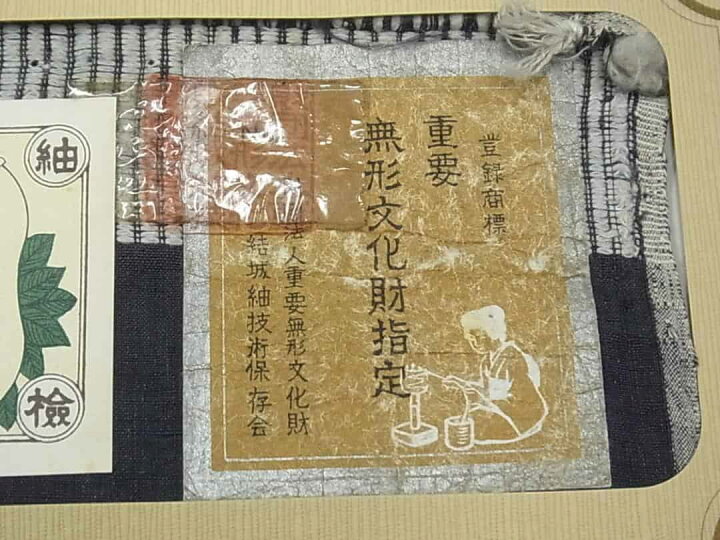 登録商標
重要
無形文化財指定
法人重要無形文化財
結城紬技術保存会
紬
檢